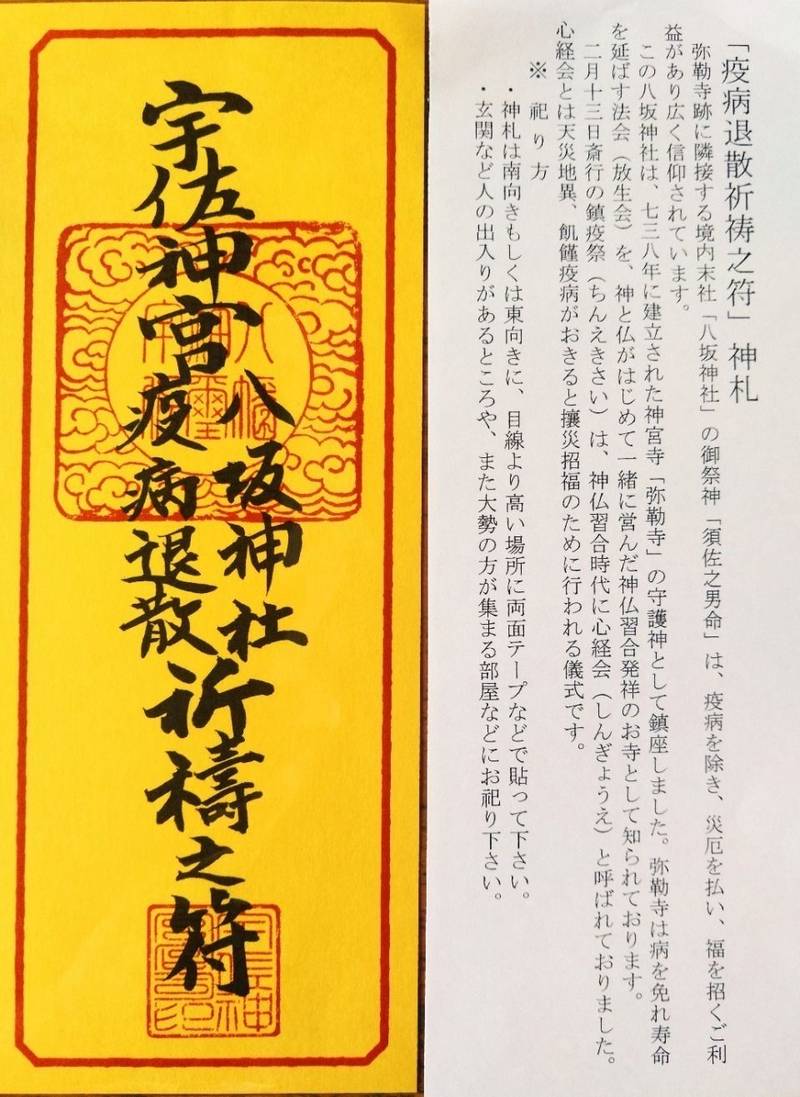 宇佐神宮
八坂神社
疫病退散
祈禱之符
「疫病退散祈祷之符」神札
弥勒寺跡に隣接する境内末社「八坂神社」の御祭神「須佐之男命」は、疫病を除き、災厄を払い、福を招くご利
益があり広く信仰されています。
この八坂神社は、七三八年に建立された神宮寺「弥勒寺」の守護神として鎮座しました。弥勒寺は病を免れ寿命
を延ばす法会（放生会）を、神と仏がはじめて一緒に営んだ神仏習合発祥のお寺として知られております。
二月十三日斎行の鎮疫祭（ちんえきさい）は、神仏習合時代に心経会（しんぎょうえ）と呼ばれておりました。
心経会とは天災地異、飢饉疫病がおきると攘災招福のために行われる儀式です。
※ 祀り方
・神札は南向きもしくは東向きに、目線より高い場所に両面テープなどで貼って下さい。
・玄関など人の出入りがあるところや、また大勢の方が集まる部屋などにお祀り下さい。